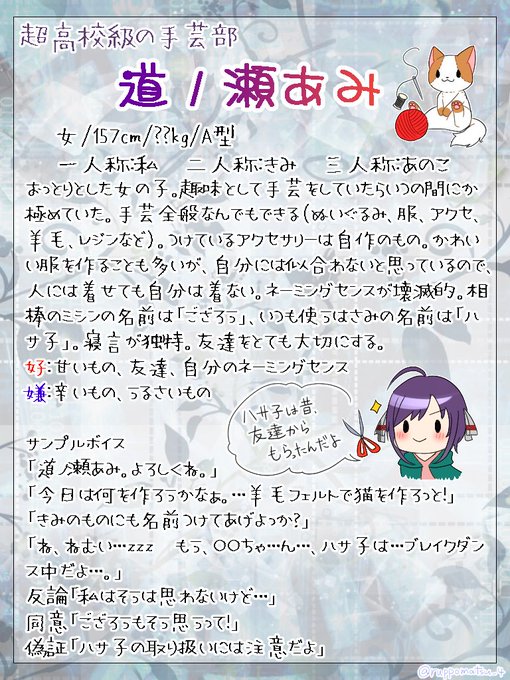 超高校級の手芸部
道ノ瀬あみ
女/157cm/??kg/A型
一人称:私 二人称:きみ 三人称:あのこ
おっとりとした女の子。趣味として手芸をしていたらいつの間にか
極めていた。手芸全般なんでもできる(ぬいぐるみ、服、アクセ、
羊毛、レジンなど)。つけているアクセサリーは自作のもの。かわい
い服を作ることも多いが、自分には似合わないと思っているので、
人には着せても自分は着ない。ネーミングセンスが壊滅的。相
棒のミシンの名前は「ござろう」、いつも使うはさみの名前は「ハ
サ子」。寝言が独特。友達をとても大切にする。
好:甘いもの、友達、自分のネーミングセンス
嫌:辛いもの、うるさいもの
ハサ子は昔、
友達から
もらったんだよ
サンプルボイス
「道ノ瀬あみ。よろしくね。」
「今日は何を作ろうかなぁ。…羊毛フェルトで猫を作ろっと!」
「きみのものにも名前つけてあげよっか?」
「ね、ねむい…zzz もう、〇〇ちゃ…ん…、ハサ子は…ブレイクダン
ス中だよ…。」
反論「私はそうは思わないけど…」
同意「ござろうもそう思うって!」
偽証「ハサ子の取り扱いには注意だよ」
@ruppomatsu_4